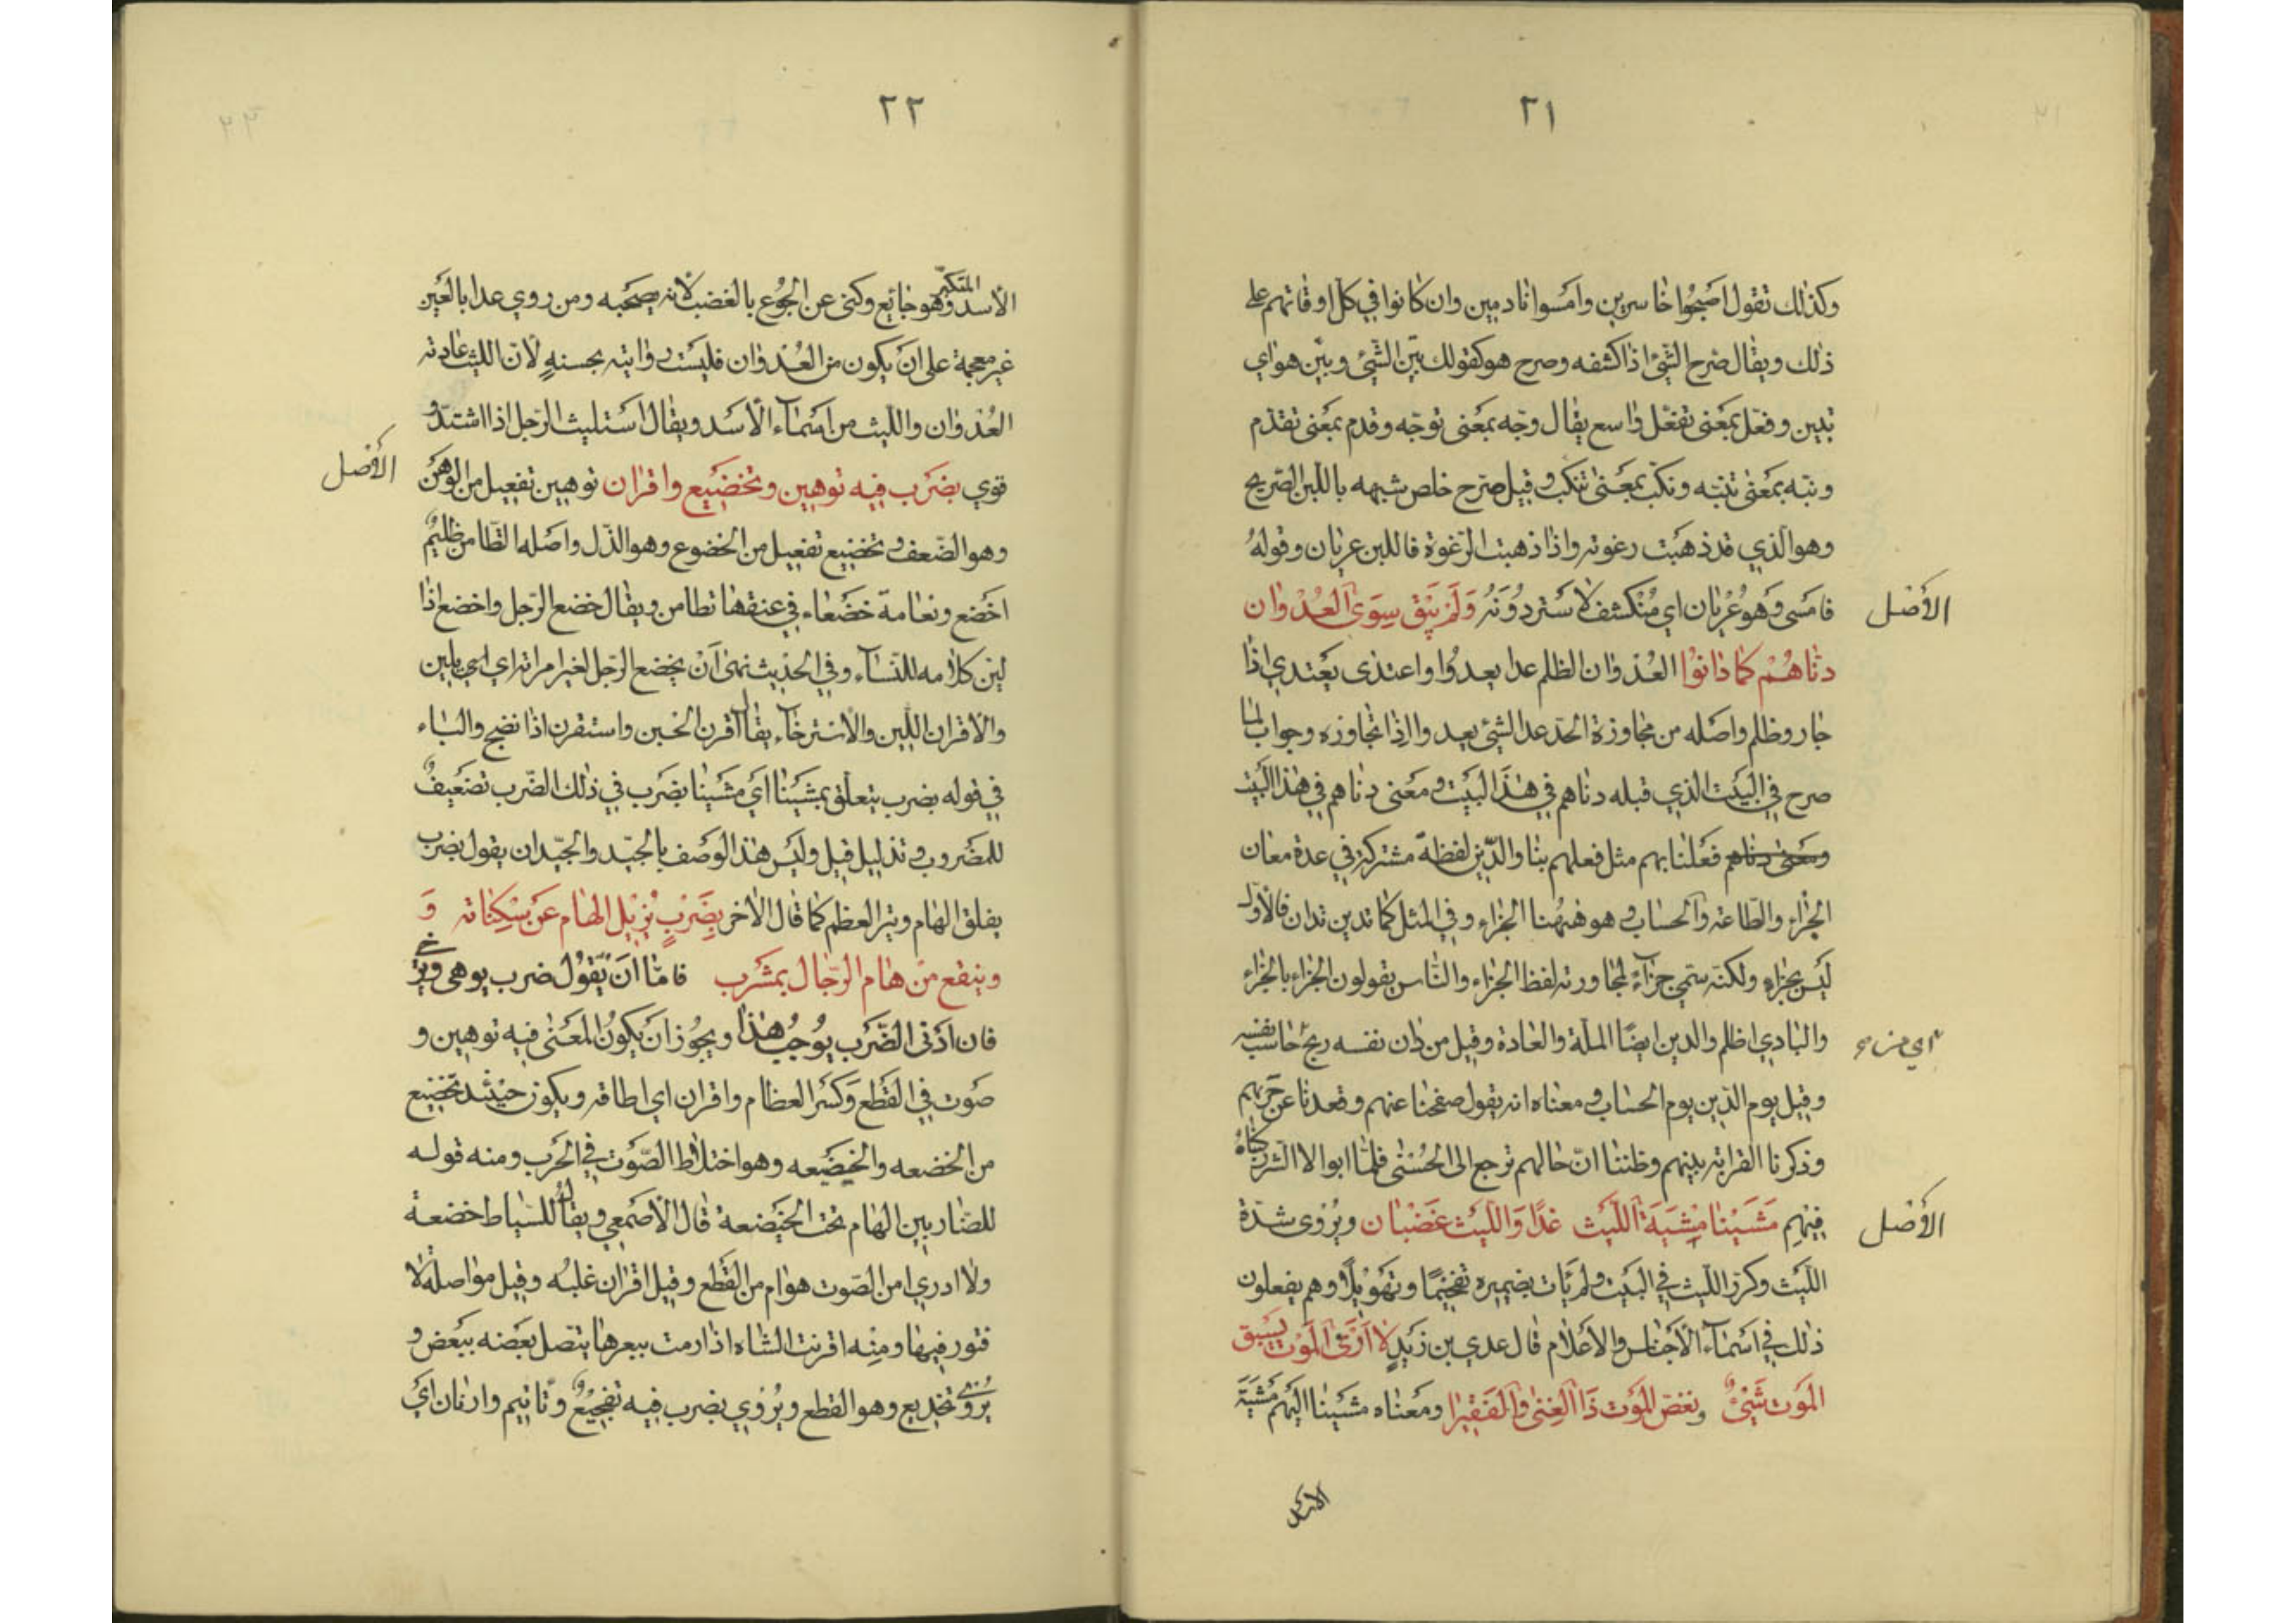 ٢١
وكذلك تقول اصبحوا خاسرين وامسوا نادمين وان كانوا في كل اوقاتهم على
ذلك ويقال صرح الشئ اذا كشفه وصرح هو كقولك بيّن الشئ وبيّن هو اي
تبين وفعّل بمعنى تفعّل واسع يقال وجّه بمعنى توجّه وقدم بمعنى تقدّم
ونبّه بمعنى تنبّه ونكّب بمعنى تنكب وقيل صرّح خلص شبهه باللبن الصّريح
وهو الذي قد ذهبت رغوته واذا ذهبت الرّغوة فاللبن عريان وقوله
الأصل
فامسى وهو عُرْيان اي مُنكشف لا ستر دُوَنهُ وَلَمْ يَبْقَ سِوَى الْعُدْوان
دنّاهُمْ كما دانوْا العُدْوان الظلم عدا يعدُوا واعتدى يَعتدي اذا
جار وظلم واصله من مجاوزة الحدّ عدا الشئ يعدوا اذا تجاوزه وجواب لما
صرح في البيت الذي قبله دنّاهم في هذا البيت ومعنى دنّاهم في هذا البيت
فعَلنا بهم مثل فعلهم بنا والدّين لفظة مشتركة في عدة معان
الجزاء والطّاعة والحساب و هو هٰهُنا الجزاء وفي المثل كما تدين تدان فالأول
ليس بجزاء ولكنّه سمّي جزاءً لمجاورته لفظ الجزاء والنّاس يقولون الجزاء بالجزاء
والبادي اظلم والدين ايضًا الملّة والعادة وقيل من دان نفسه ربح اي حاسب نفسه
وقيل يوم الدّين يوم الحساب و معناه انه يقول صفحنا عنهم وقعدنا عن حَربهم
وذكرنا القرابة بينهم وظننا انّ حالهم ترجع الى الحُسْنى فلمّا ابوا الا الشر ركبناهُ
الأصل
فيهِم مَشَيْنا مِشْيَةَ اللّيْث غدًا وَاللّيْث غَضْبان ويُرْوى شدّة
اللّيث وكرّر اللّيث في البيت ولم يَات بضميره تفخيمًا وتهْويلًا وهم يفعلون
ذلك في اسْماء الأجناس والاعْلام قال عدي بن زيْدٍ لا أَرَى المَوْت يَسْبِق
المَوت شَيْئٌ نغّصَ المَوت ذَا الغِنى والفَقيرا ومعناه مشَيْنا اليهم مَشْيَة
الاسد
٢٢
الأسد المتكبّر وهو جائع وكنى عن الجُوع بالغضب لأنّه يصحبه ومن روى عدا بالعين
غير معجمة على ان يكون من العُدْوان فليست روايته بحسنةٍ لأن اللّيث عادته
العُدْوان واللّيث من اسْماء الأسَد ويقال استليث الرّجل اذا اشتدّ و
الأصل
قوي بضَرب فيه توهين وتخضيع واقران توهين تفعيل من الوَهَن
وهو الضّعف و تخضيع تفعيل من الخضوع وهو الذّل واصله التّطامن ظليمٌ
اخضع ونعامة خضعاء في عنقها تطامن ويقال خضع الرّجل واخضع اذا
ليّن كلامه للنّساء وفي الحديث نهى أنْ يخضع الرّجل لغير امراته اي يلين
والاقران اللّين والاسترخاء يقال اقرن الحبن واستقرن اذا نضج والباء
في قوله بضرب يتعلّق بمشَيْنا اي مشَينا بضَرب في ذلك الضّرب تضعيفٌ
للمَضْروب و تذليل قيل وليس هذا الوَصف بالجيّد والجيّد ان يقول بضرب
يفلق الهام ويتر العظم كما قال الآخر بِضَرْبٍ يُزيْل الهام عَن سَكِناته وَ
وينقع من هام الرّجال بمشرب فامّا انْ يَقُول ضرب يوهى ويرخي
فان ادْنى الضّرب يُوجبُ هذا ويجوز ان يكونُ المَعنى فيه توهين و
صَوت في القَطع وَكسْر العظام واقران اي اطاقة ويكون حيْنئذ تخضيع
من الخضعه والخيضعه وهو اختلاط الصّوْت في الحَرب ومنه قوله
للضّاربين الهام تحت الخيضعة قال الأصمعي ويقال للسّياط خضعة
ولا ادري امن الصّوت هو ام من القَطع وقيل اقران غلبُه وقيل مواصلة لا
فتور فيها ومِنه اقرنت الشاه اذا رمت ببعرها يتصل بعَضه ببعض و
يُرْوى تخذيع وهو القطع ويُرْوي بضرب فيه تفجيعٌ وتأييم وارنان ايْ